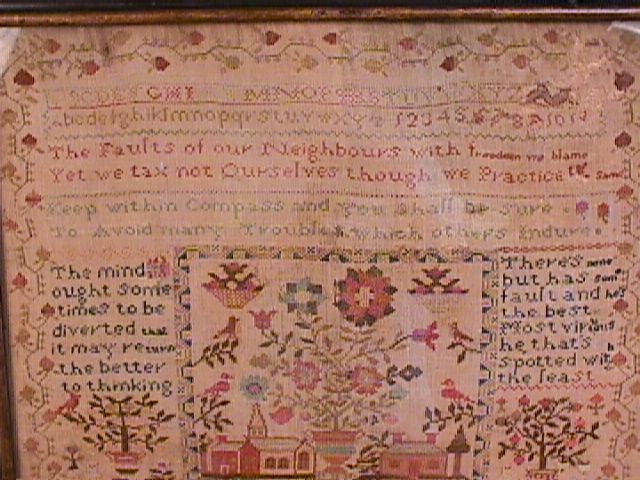 abcdefghiklmnopqrstuvwxyz 12345678
The Faults of our Neighbours with freedom we blame
Yet we tax not Ourselves though we Practice the Same
Keep within Compass and you Shall be Sure
To Avoid many Troubles which others Endure
The mind
ought Some
times to be
diverted that
it may return
the better
to thinking
There's none
but has Some
fault and he's
the best
Most virtuous
he that's
Spotted with
the least